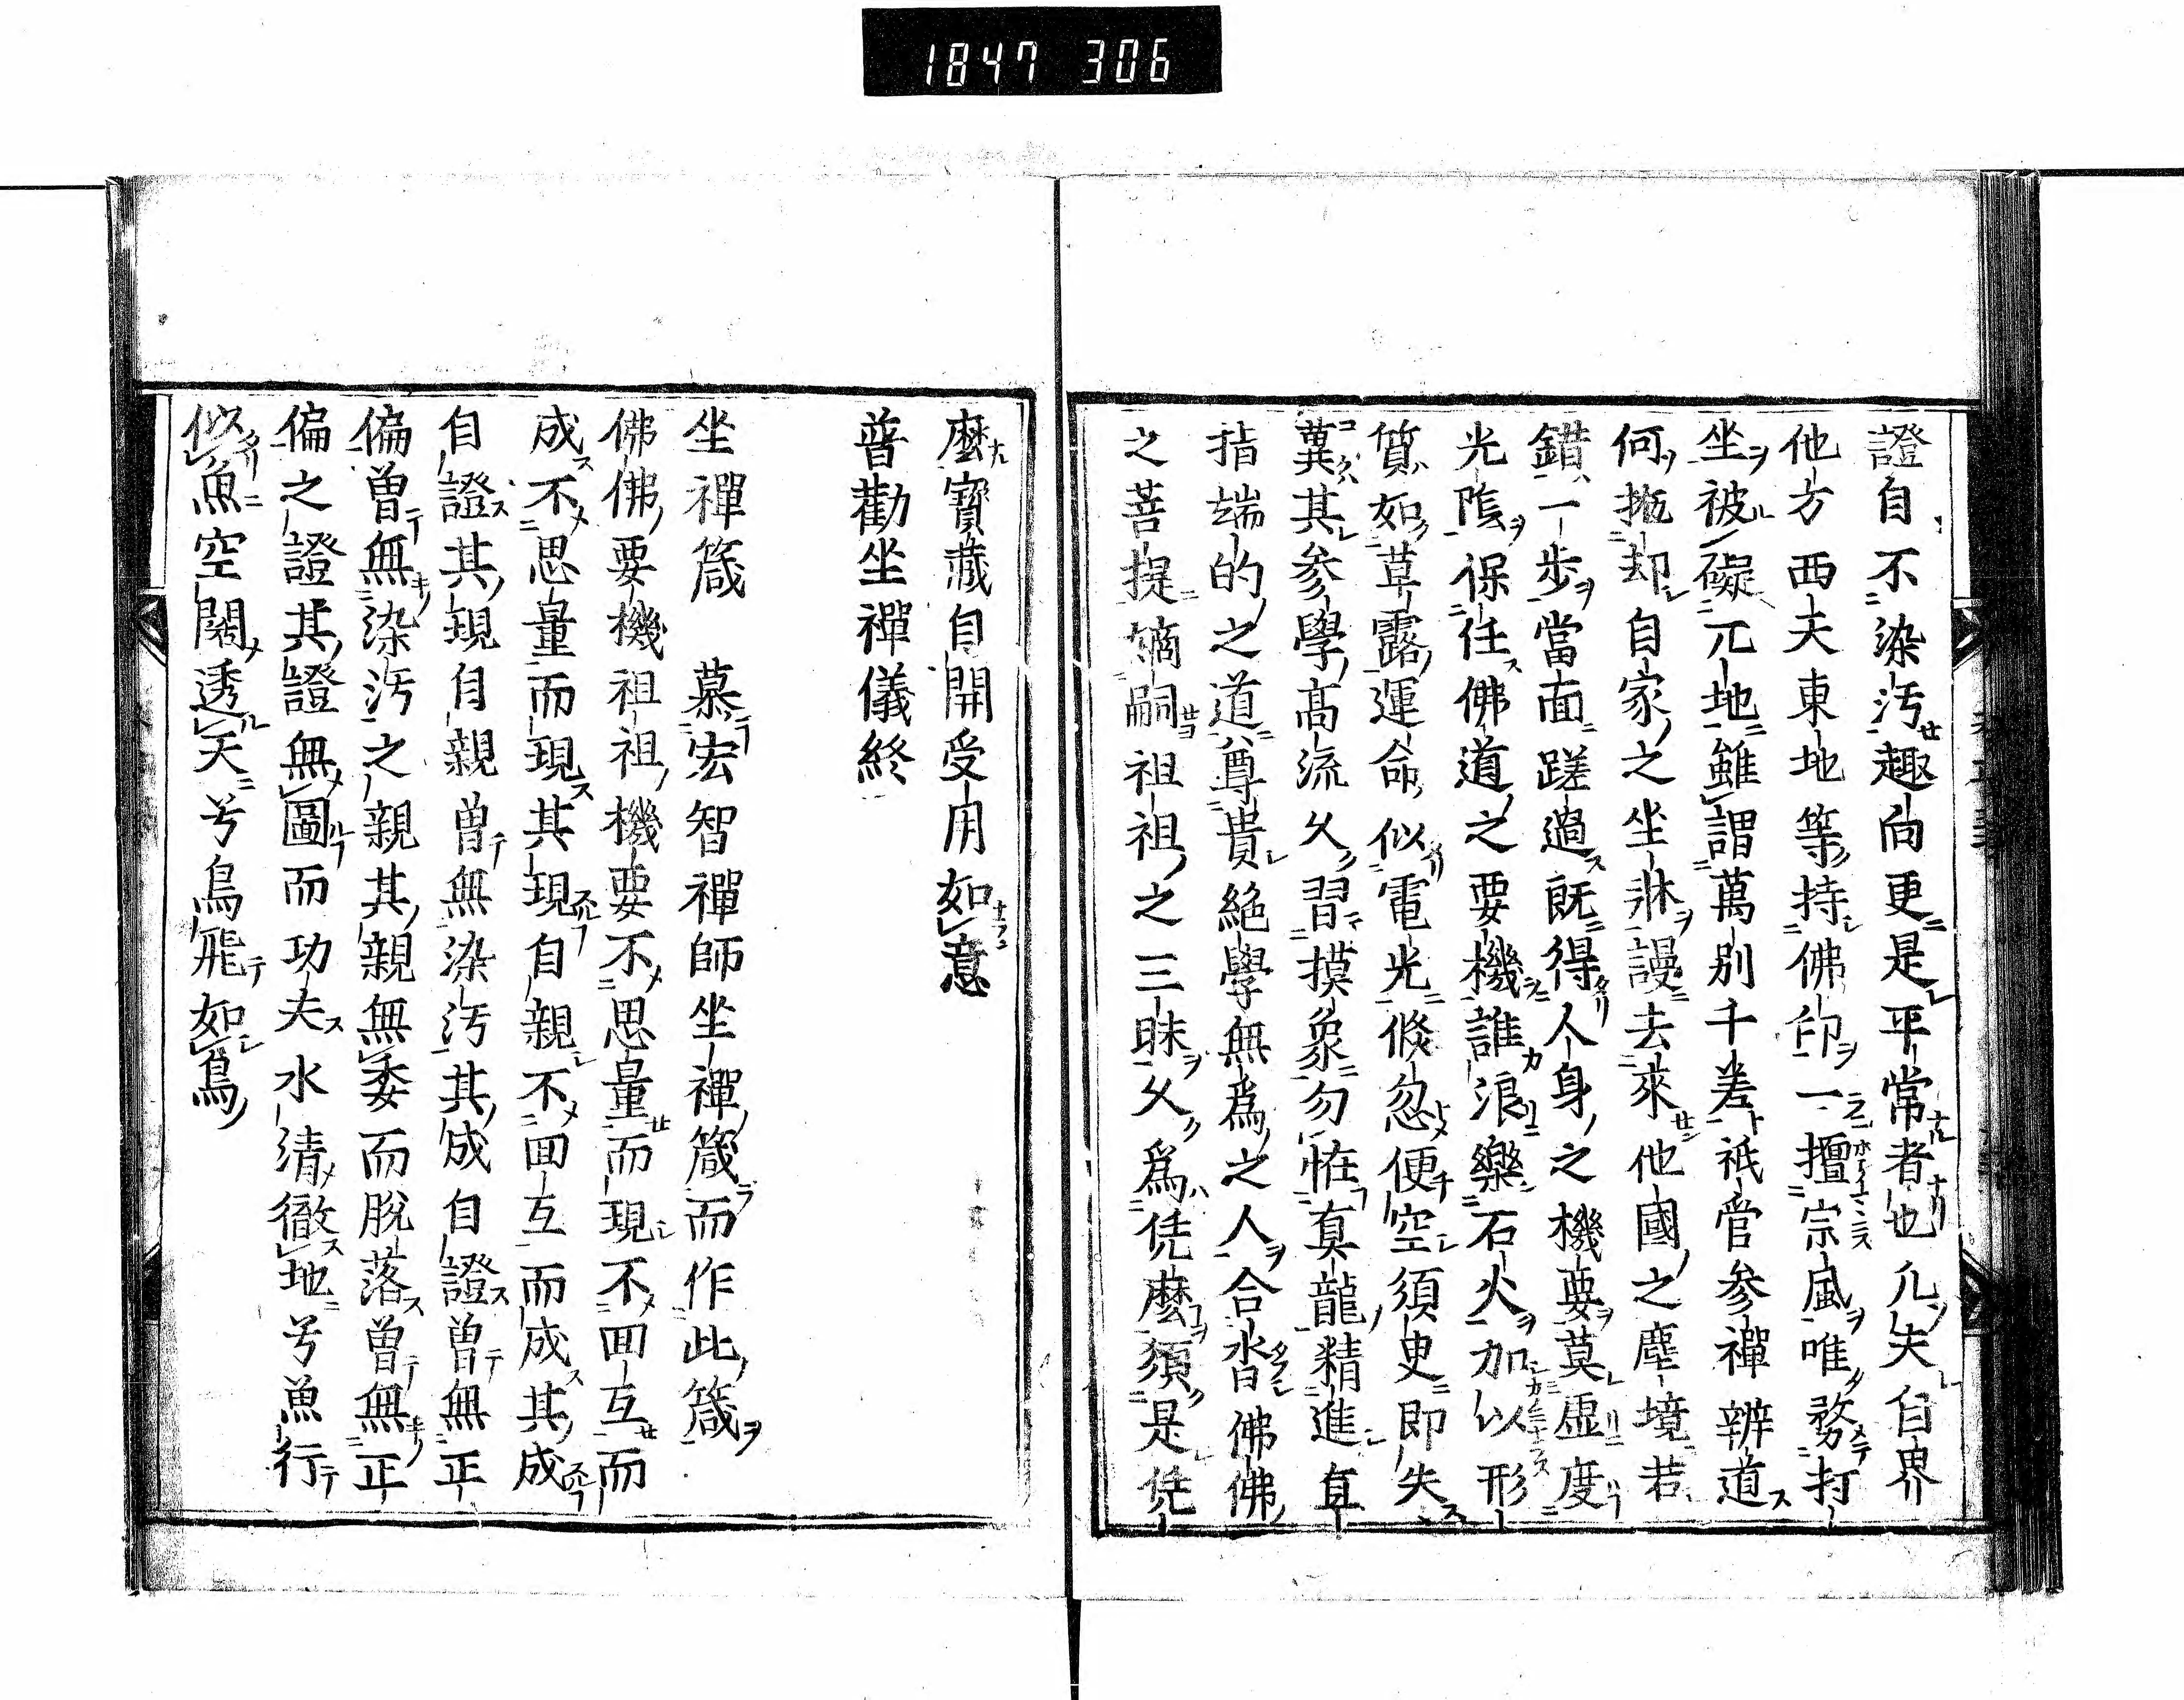 1847 306
證自不染汚趣向更是平常者也凢夫自界
他方西天東地等持佛印一擅宗風唯務打
坐被礙兀地雖謂萬別千差祇管参禪辨道
何抛却自家之坐牀謾去來他國之塵境若
錯一步當面蹉過既得人身之機要莫虚度
光陰保任佛道之要機誰浪樂石火加以形
質如草露運命似電光倐忽便空須臾即失
冀其参學髙流久習摸象勿恠真龍精進直
指端的之道尊貴絶學無爲之人合沓佛佛
之菩提嫡嗣祖祖之三昧久爲恁麽須是恁
麽寶藏自開受用如意
普勸坐禪儀終
坐禪箴　慕宏智禪師坐禪箴而作此箴
佛佛要機祖祖機要不思量而現不囘互而
成不思量而現其現自親不囘互而成其成
自證其現自親曾無染汚其成自證曾無正
偏曾無染汚之親其親無委而脫落曾無正
偏之證其證無圖而功夫水清徹地兮魚行
似魚空闊透天兮鳥飛如鳥